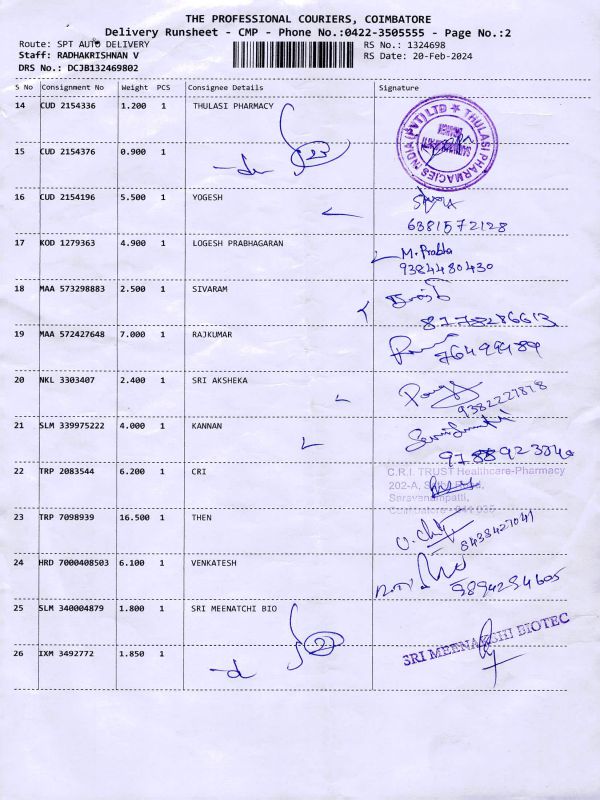 THE PROFESSIONAL COURIERS, COIMBATORE
Delivery Runsheet - CMP - Phone No.:0422-3505555 - Page No.:2
Route: SPT AUTO DELIVERY
RS No.: 1324698
Staff: RADHAKRISHNAN V
RS Date: 20-Feb-2024
DRS No.: DCJB132469802
S No Consignment No Weight PCS Consignee Details Signature
14 CUD 2154336 1.200 1 THULASI PHARMACY
THULASI PHARMACIES INDIA (PVT) LTD
15 CUD 2154376 0.900 1
23
16 CUD 2154196 5.500 1 YOGESH
6381572128
17 KOD 1279363 4.900 1 LOGESH PRABHAGARAN
M. Prabha
9384480430
18 MAA 573298883 2.500 1 SIVARAM
19 MAA 572427648 7.000 1 RAJKUMAR
20 NKL 3303407 2.400 1 SRI AKSHEKA
21 SLM 339975222 4.000 1 KANNAN
22 TRP 2083544 6.200 1 CRI
C.R.I. TRUST Healthcare-Pharmacy
202-A,
Saravanampatti,
Coimbatore
23 TRP 7098939 16.500 1 THEN
8438427041
24 HRD 7000408503 6.100 1 VENKATESH
9894294605
25 SLM 340004879 1.800 1 SRI MEENATCHI BIO
SRI MEENAKSHI BIOTEC
26 IXM 3492772 1.850 1